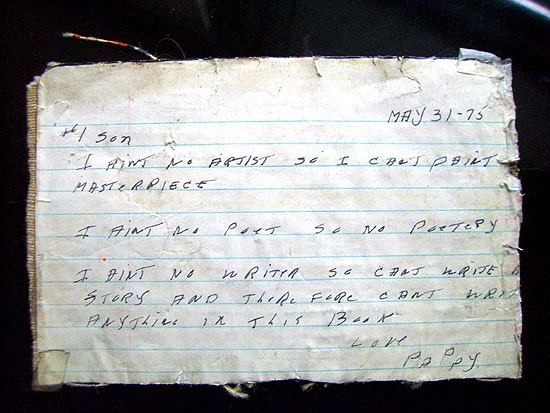 MAY 31-75
#1 Son
I AINT NO ARTIST SO I CANT PAINT
MASTERPIECE
I AINT NO POET SO NO POETERY
I AINT NO WRITER SO CANT WRITE A
STORY AND THERE FORE CANT WRIT
ANYTHING IN THIS BOOK
LOVE
PAPPY